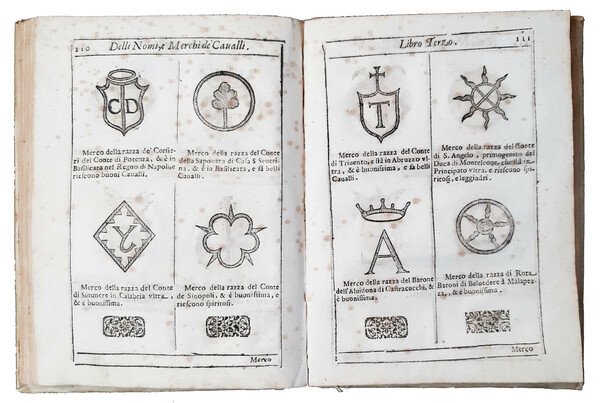 110 Delli Nomi, e Merchi de' Caualli.
C D
Merco della razza de' Corsie-
ri del Conte di Potenza, & è in
Basilicata nel Regno di Napoli, e
riescono buoni Caualli.
Merco della razza del Conte
della Saponara di Casa S. Seueri-
na, & è in Basilicata, e fa belli
Caualli.
Y
Merco della razza del Conte
di Simmere in Calabria vltra,
& è buonissima.
Merco della razza del Conte
de Sinopoli, & è buonissima, e
riescono spiritosi.
Merco
Libro Terzo. 111
T
Merco della razza del Conte
di Triuento, e stà in Abruzzo vl-
tra, & è buonissima, e fa belli
Caualli.
Merco della razza del Conte
di S. Angelo, primogenito del
Duca di Monteleone, che stà in
Principato vltra, e riescono spi-
ritosi, e leggiadri.
A
Merco della razza del Barone
dell'Aluidona di Castrocucchi, &
è buonissima.
Merco della razza di
Baroni di Beluedere
& è buonissima.
Merco